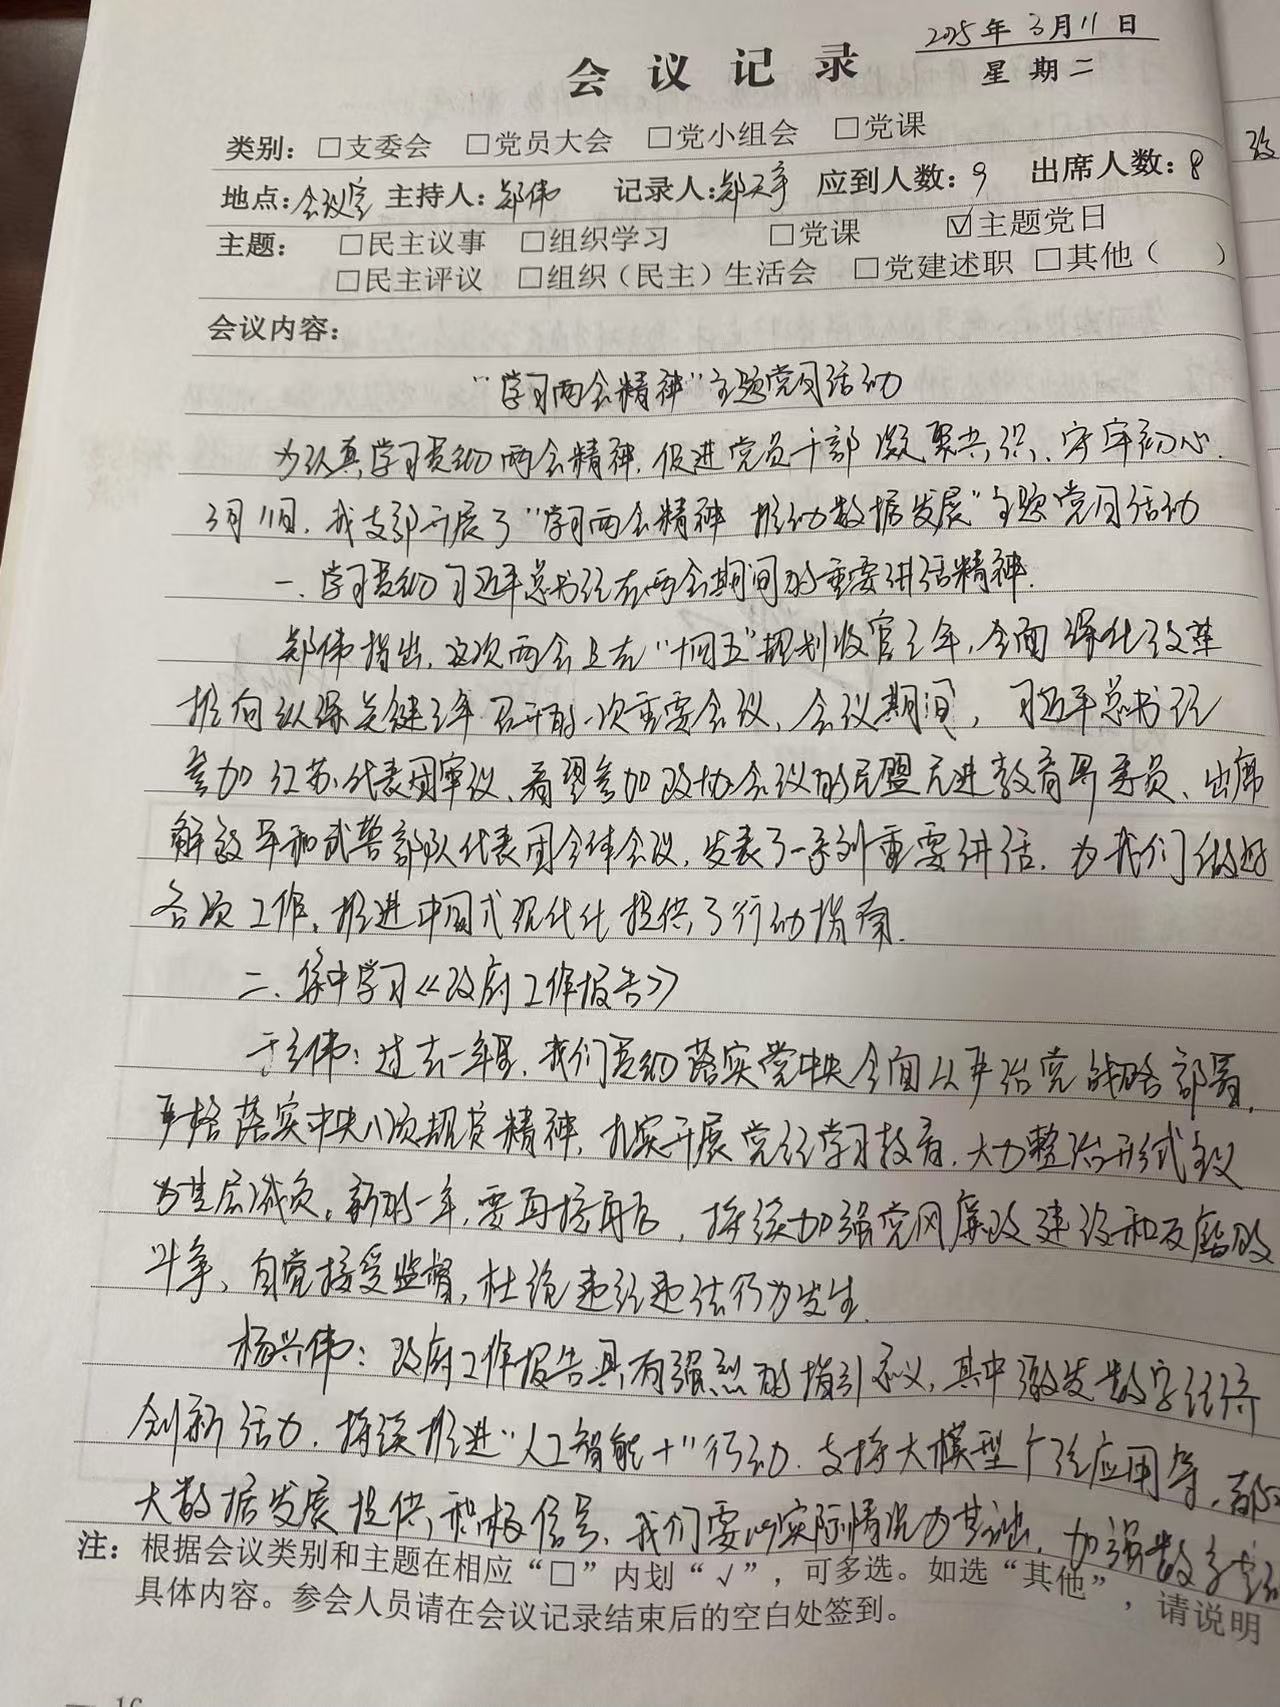 2025年3月11日
会议记录
星期二
类别：□支委会 □党员大会 □党小组会 □党课
地点：会议室 主持人：郑伟 记录人：郑天宇 应到人数：9 出席人数：8
主题：□民主议事 □组织学习 □党课 ☑主题党日
□民主评议 □组织（民主）生活会 □党建述职 □其他（ ）
会议内容：
“学习两会精神”主题党日活动
为认真学习贯彻两会精神，促进党员干部凝聚共识、守牢初心，
3月11日，我支部开展了“学习两会精神 推动数据发展”主题党日活动
一、学习贯彻习近平总书记在两会期间的重要讲话精神.
郑伟指出，这次两会是在“十四五”规划收官之年，全面深化改革
推向纵深关键之年召开的一次重要会议，会议期间，习近平总书记
参加江苏代表团审议、看望参加政协会议的民盟民进教育界委员、出席
解放军和武警部队代表团全体会议，发表了一系列重要讲话，为我们做好
各项工作，推进中国式现代化提供了行动指南.
二、集中学习《政府工作报告》
于立伟：过去一年里，我们贯彻落实党中央全面从严治党战略部署，
严格落实中央八项规定精神，扎实开展党纪学习教育，大力整治形式主义
为基层减负。新的一年，要再接再厉，持续加强党风廉政建设和反腐败
斗争，自觉接受监督，杜绝违纪违法行为发生.
杨兴伟：政府工作报告具有强烈的指引意义，其中激发数字经济
创新活力，持续推进“人工智能+”行动，支持大模型广泛应用等，都
大数据发展提供积极信号，我们要以实际情况为基础，加强数字
注：根据会议类别和主题在相应“□”内划“√”，可多选。如选“其他”，请说明
具体内容。参会人员请在会议记录结束后的空白处签到。
16